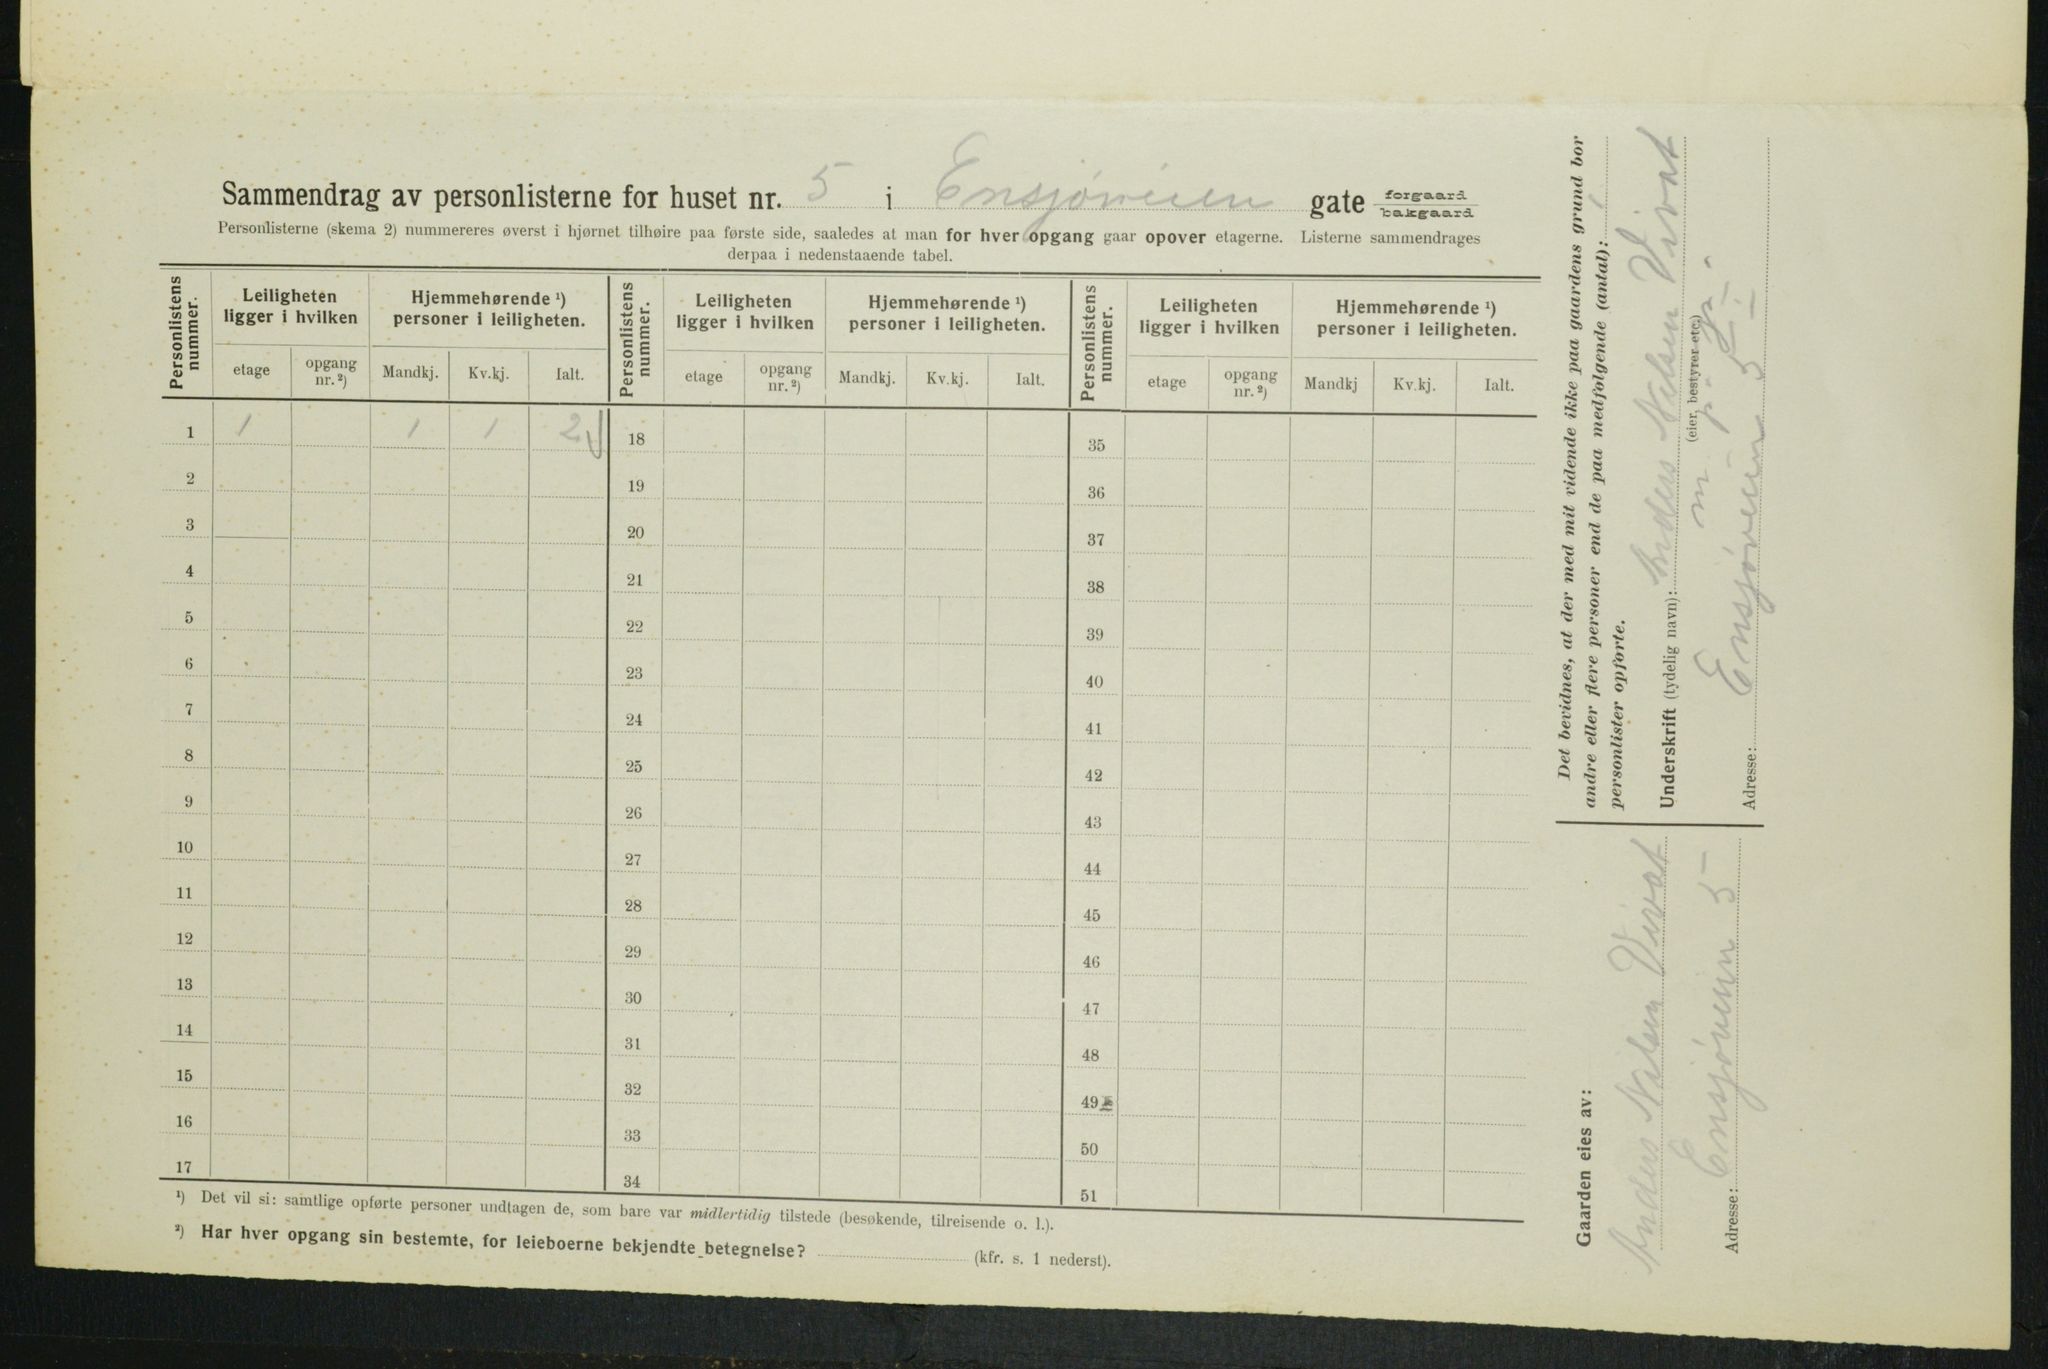 Sammendrag av personlisterne for huset nr. 5 i Ensjøveien gate forgaard bakgaard
Personlisterne (skema 2) nummereres øverst i hjørnet tilhøire paa første side, saaledes at man for hver opgang gaar opover etagerne. Listerne sammendrages
derpaa i nedenstaaende tabel.
Personlistens nummer. Leiligheten ligger i hvilken Hjemmehørende ¹) personer i leiligheten. Personlistens nummer. Leiligheten ligger i hvilken Hjemmehørende ¹) personer i leiligheten. Personlistens nummer. Leiligheten ligger i hvilken Hjemmehørende ¹) personer i leiligheten.
etage opgang nr. ²) Mandkj. Kv.kj. Ialt. etage opgang nr. ²) Mandkj. Kv.kj. Ialt. etage opgang nr. ²) Mandkj Kv.kj. Ialt.
1 1 1 1 2 18 35
2 19 36
3 20 37
4 21 38
5 22 39
6 23 40
7 24 41
8 25 42
9 26 43
10 27 44
11 28 45
12 29 46
13 30 47
14 31 48
15 32 49
16 33 50
17 34 51
¹) Det vil si: samtlige opførte personer undtagen de, som bare var midlertidig tilstede (besøkende, tilreisende o. l.).
²) Har hver opgang sin bestemte, for leieboerne bekjendte betegnelse? (kfr. s. 1 nederst).
Det bevidnes, at der med mit vidende ikke paa gaardens grund bor
andre eller flere personer end de paa medfølgende (antal): 1
personlister opførte.
Underskrift (tydelig navn): Anders Nilsen Vivat
(eier, bestyrer etc.)
Adresse: Ensjøveien 5
Gaarden eies av:
Anders Nilsen Vivat
Adresse: Ensjøveien 5